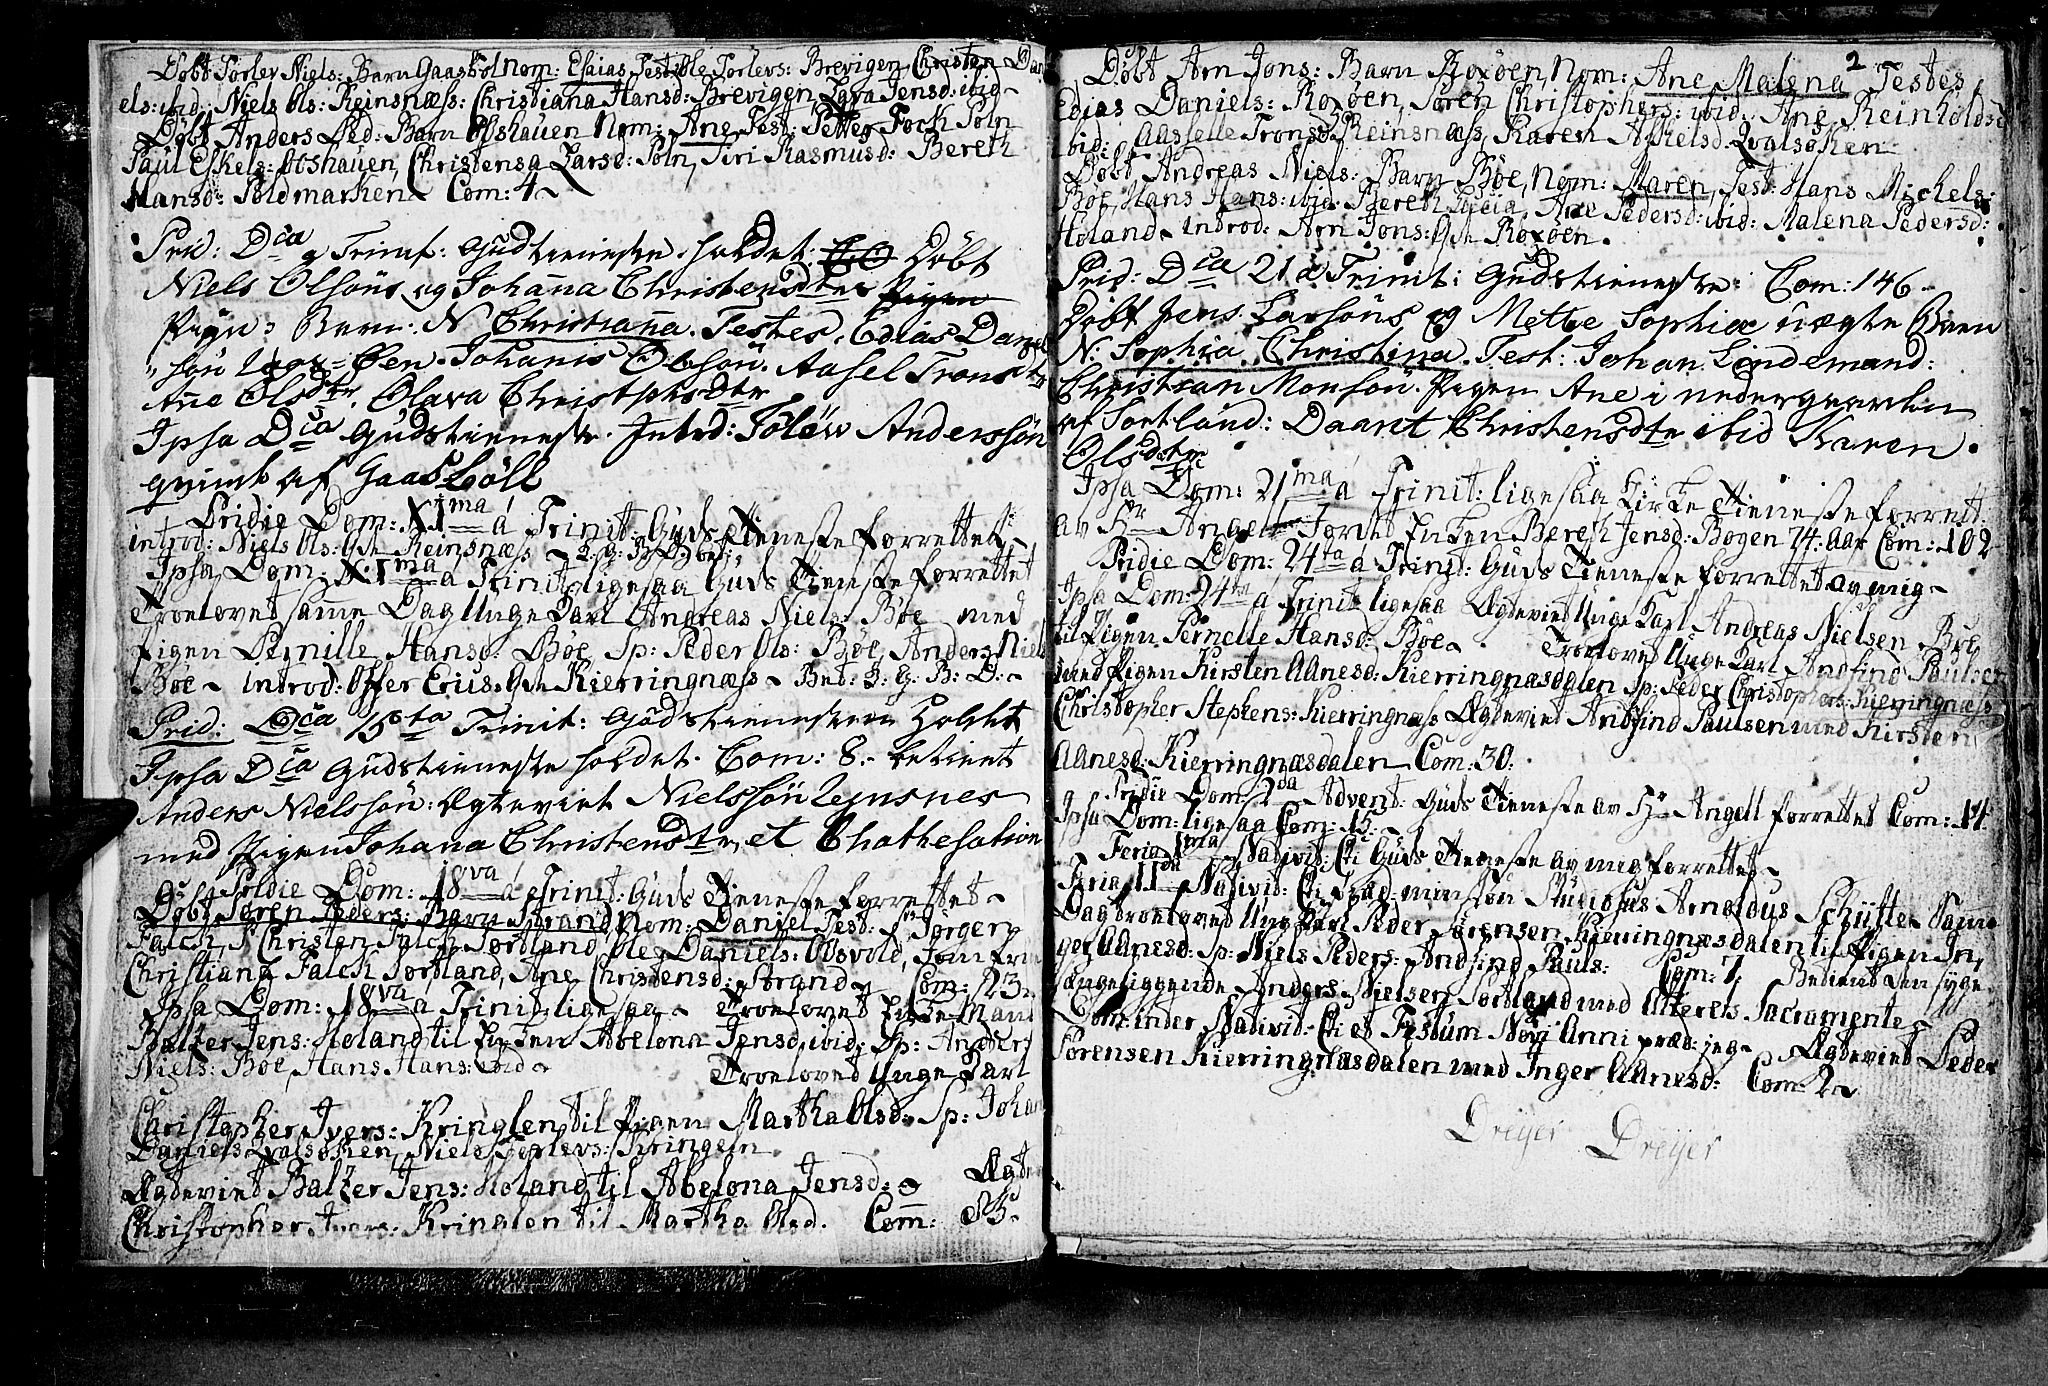 Døbt Torlev Niels: Barn Gaasbol Nom: Esaias Test: Ole Torlevs: Brevigen, Christen Dani
els: ibid: Niels Ols: Reinsnæss: Christiana Hansd: Brevigen, Jensd: ibid
Døbt Anders Ped: Barn Nom: Ane Test: Petter Fock
Paul Eskels: Christensa Larsd: Siri Rasmusd: Bereth
Hansd: Soldmarken Com: 4
Prid: Dca Trinit: Gudstieneste holdet. Døbt
Niels Olsöns og Johaña Christensdter Pigen
Barn: N Christiaña. Testes, Edias Dan
sön Johanis Olsön. Aasel Trons
Añe Olsdtr. Olava Christphersdtr
Ipsa Dca Gudstieneste. Introd: Andersson
qvinde af Gaasböll
Pridie Dom: XIma á Trinit: Guds Tieneste forrettet
introd: Niels Ols: Qde Reinsnæss
Ipsa Dom: XIma á Trinit: ligesaa Guds Tieneste forrettet
Troelovet same Dag Unge Karl Andreas Niels: Bøe med
Pigen Pernille Hansd: Bøe, Sp: Peder Ols: Bøe, Anders Niels
Bøe introd: Offer Qde Kierringnæss
Prid: Dca 15ta Trinit: Gudstienesten holdt
Ipsa Dca Gudstieneste holdet. Com: 8. betient
Anders Nielssön: Ægteviet Nielssön
med Pigen Johana Christensdtr, et Chathesation
Pridie Dom: 18va á Trinit: Guds Tieneste forrettet
Døbt Søren Peders: Barn Strand, Nom: Daniel Test: Sr Jørgen
Falch, Sr Christen Falch Sortland, Ole Daniels: Jomfru
Christiana Falch Sortland, Ane Christensd: Strand Com: 23
Ipsa Dom: 18va á Trinit: ligesaa Troelovet Encke Mand
Balzer Jens: Holand til Encken Abelona Jensd: ibid: Sp: Anders
Niels: Bøe, Hans Hans: ibid Troeloved Unge Karl
Christopher Ivers: Kringlen til Pigen Martha Olsd: Sp: Johan
Daniels: Qvalsøken, Niels Torlevs: Kringeln.
Ægteviet Balzer Jens: Holand til Abelona Jensd: Ægte
Christopher Ivers: Kringlen til Martha Olsd. Com: 85
2
Døbt Arn Jons: Barn Roxøen, Nom: Ane Malena Testes
Edias Daniels: Roxøen, Søren Christophers: ibid: Ane Reinholdsd
ibid: Aaselle Tronsd: Reinsnæss, Karen Askelsd: Qvalsøken
Døbt Andreas Niels: Barn Bøe, Nom: Maren, Test: Hans Michels:
Bøe, Hans Hans: ibid: Bereth Lucia, Ane Pedersd: ibid: Malena Pedersd:
Holand Introd: Arn Jons: Qde Roxøen.
Prid: Dca 21 a Trinit: Gudstieneste: Com: 146
Døbt Jens Larsöns og Mette Sophiæ uægte Barn
N: Sophia Christina. Test: Johan Lindemand:
Christian Monsön. Pigen Ane i nedergaarden
af Sortland: Daaret Christensdtr ibid Karen
Olsdtr
Ipsa Dom: 21ma á Trinit: ligesaa Kirke Tieneste forrett:
av Hr Angell Jordet Enken Bereth Jensd: Bogen 74: Aar Com: 102
Pridie Dom: 24ta á Trinit: Guds Tieneste forrettet av mig
Ipsa Dom: 24ta á Trinit: ligesaa Ægteviet Unge Karl Andreas Nielsen Bøe
til Pigen Pernelle Hansd: Bøe Troelovet Unge Karl Andfind Paulsen
med Pigen Kirsten Aanesd: Kierringnæsdalen Sp: Peder Christophers: Kierringnæss
Christopher Stephens: Kierringnæss Ægteviet Andfind Paulsen med Kirsten
Aanesd: Kierringnæsdalen Com: 30.
Pridie Dom: 2da Advent: Guds Tieneste av Hr Angell forrettet Com: 14
Ipsa Dom: ligesaa Com: 15
Feria 1ma Nativit: Cti Guds Tieneste av mig forrettet
Feria IIda Nativit: Cti Præd: min søn Studiosus Arnoldus Schytte Same
Dag troelovet Ung Karl Peder Sørensen Kierringnæsdalen til Pigen In,
ger Aanesd: Sp: Niels Peders: Andfind Pauls: Com: 7. Betient den syge
sængeliggende Anders Nielsen Sortland med Alterets Sacramente
Dom: inder Nativit: Cti et Festum Novi Anni præd: jeg Ægteviet Peder
Sørensen Kierringnæsdalen med Inger Aanesd: Com: 2
Dreyer Dreyer